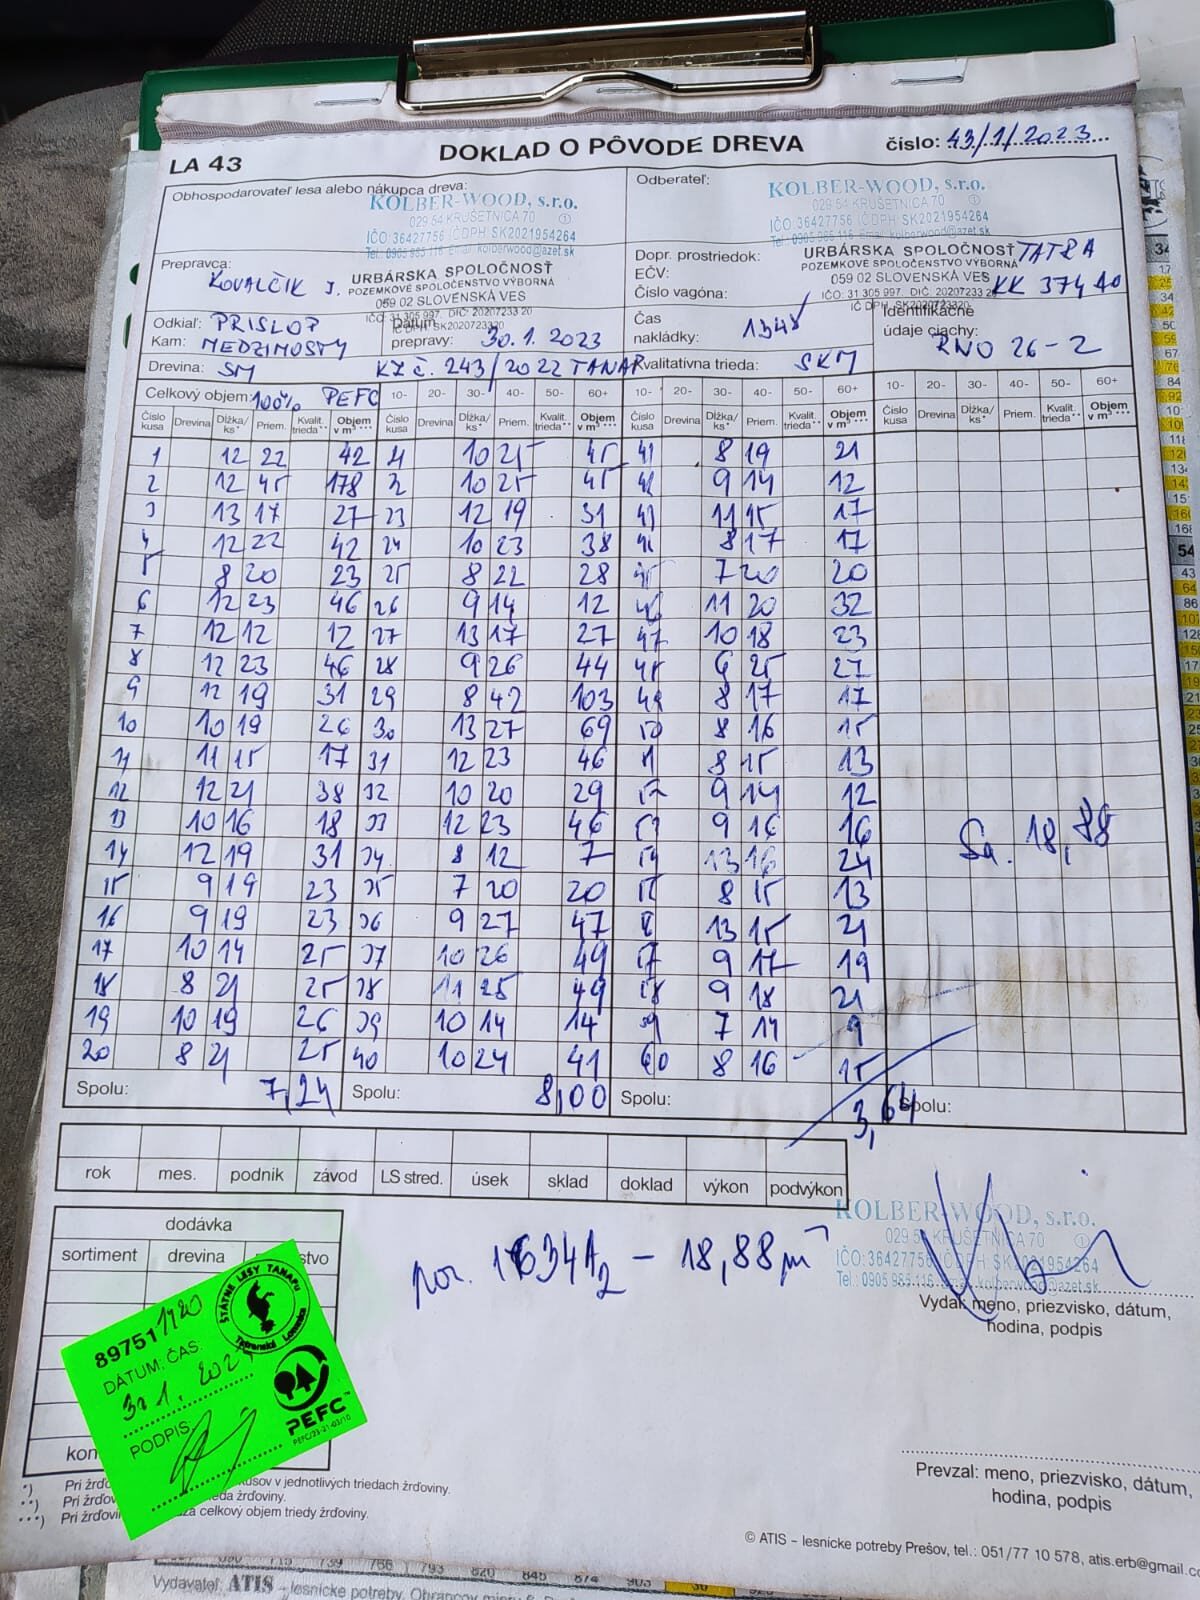 LA 43
DOKLAD O PÔVODE DREVA
číslo: 43/1/2023
Obhospodarovateľ lesa alebo nákupca dreva:
KOLBER-WOOD, s.r.o.
029 54 KRUŠETNICA 70 ①
IČO:36427756 IČDPH:SK2021954264
Tel.: 0905 985 116 Email: kolberwood@azet.sk
Odberateľ:
KOLBER-WOOD, s.r.o.
029 54 KRUŠETNICA 70 ①
IČO:36427756 IČDPH:SK2021954264
Tel.: 0905 985 116 Email: kolberwood@azet.sk
Prepravca:
KOVALČIK J.
URBÁRSKA SPOLOČNOSŤ
POZEMKOVÉ SPOLOČENSTVO VÝBORNÁ
059 02 SLOVENSKÁ VES
IČO: 31 305 997. DIČ: 20207233 20
IČ DPH: SK2020723320
Dopr. prostriedok: TATRA
EČV: KK 374 AO
Číslo vagóna:
URBÁRSKA SPOLOČNOSŤ
POZEMKOVÉ SPOLOČENSTVO VÝBORNÁ
059 02 SLOVENSKÁ VES
IČO: 31 305 997. DIČ: 20207233 20
IČ DPH: SK2020723320
Odkiaľ: PRISLOP
Kam: MEDZIMOSTY
Dátum
prepravy: 30.1.2023
Čas
nakládky: 1345
Identifikačné
údaje ciachy:
RNO 26-2
Drevina: SM
KZ č. 243/2022 TANAP
Kvalitatívna trieda: SKM
Celkový objem: 100% PEFC
10- 20- 30- 40- 50- 60+ 10- 20- 30- 40- 50- 60+ 10- 20- 30- 40- 50- 60+
Číslo kusa Drevina Dĺžka/ks* Priem. Kvalit. trieda** Objem v m³*** Číslo kusa Drevina Dĺžka/ks* Priem. Kvalit. trieda** Objem v m³*** Číslo kusa Drevina Dĺžka/ks* Priem. Kvalit. trieda** Objem v m³*** Číslo kusa Drevina Dĺžka/ks* Priem. Kvalit. trieda** Objem v m³***
1 12 22 42 21 10 25 45 41 8 19 21
2 12 45 178 22 10 25 45 42 9 14 12
3 13 17 27 23 12 19 31 43 11 15 17
4 12 22 42 24 10 23 38 44 8 17 17
5 8 20 23 25 8 22 28 45 7 20 20
6 12 23 46 26 9 14 12 46 11 20 32
7 12 12 12 27 13 17 27 47 10 18 23
8 12 23 46 28 9 26 44 48 6 25 27
9 12 19 31 29 8 42 103 49 8 17 17
10 10 19 26 30 13 27 69 50 8 16 15
11 11 15 17 31 12 23 46 51 8 15 13
12 12 21 38 32 10 20 29 52 9 14 12
13 10 16 18 33 12 23 46 53 9 16 16
14 12 19 31 34 8 12 7 54 13 16 24
15 9 19 23 35 7 20 20 55 8 15 13
16 9 19 23 36 9 27 47 56 13 15 21
17 10 14 25 37 10 26 49 57 9 17 19
18 8 21 25 38 11 25 49 58 9 18 21
19 10 19 26 39 10 14 14 59 7 14 9
20 8 21 25 40 10 24 41 60 8 16 15
Sa. 18,88
Spolu: 7,24 Spolu: 8,00 Spolu: 3,64 Spolu:
rok mes. podnik závod LS stred. úsek sklad doklad výkon podvýkon
dodávka
sortiment drevina
por. 1634A2 - 18,88 m³
KOLBER-WOOD, s.r.o.
029 54 KRUŠETNICA 70 ①
IČO:36427756 IČDPH:SK2021954264
Tel.: 0905 985 116 Email: kolberwood@azet.sk
Vydal: meno, priezvisko, dátum,
hodina, podpis
ŠTÁTNE LESY TANAPu
Tatranská Lomnica
89751/1420
DÁTUM, ČAS:
30.1.2023
PODPIS
PEFC™
PEFC/23-21-03/10
Prevzal: meno, priezvisko, dátum,
hodina, podpis
*) Pri žrďo kusov v jednotlivých triedach žrďoviny.
**) Pri žrďovi eda žrďoviny.
***) Pri žrďovin za celkový objem triedy žrďoviny.
© ATIS – lesnícke potreby Prešov, tel.: 051/77 10 578, atis.erb@gmail.co
Vydavateľ: ATIS – lesnícke potreby,